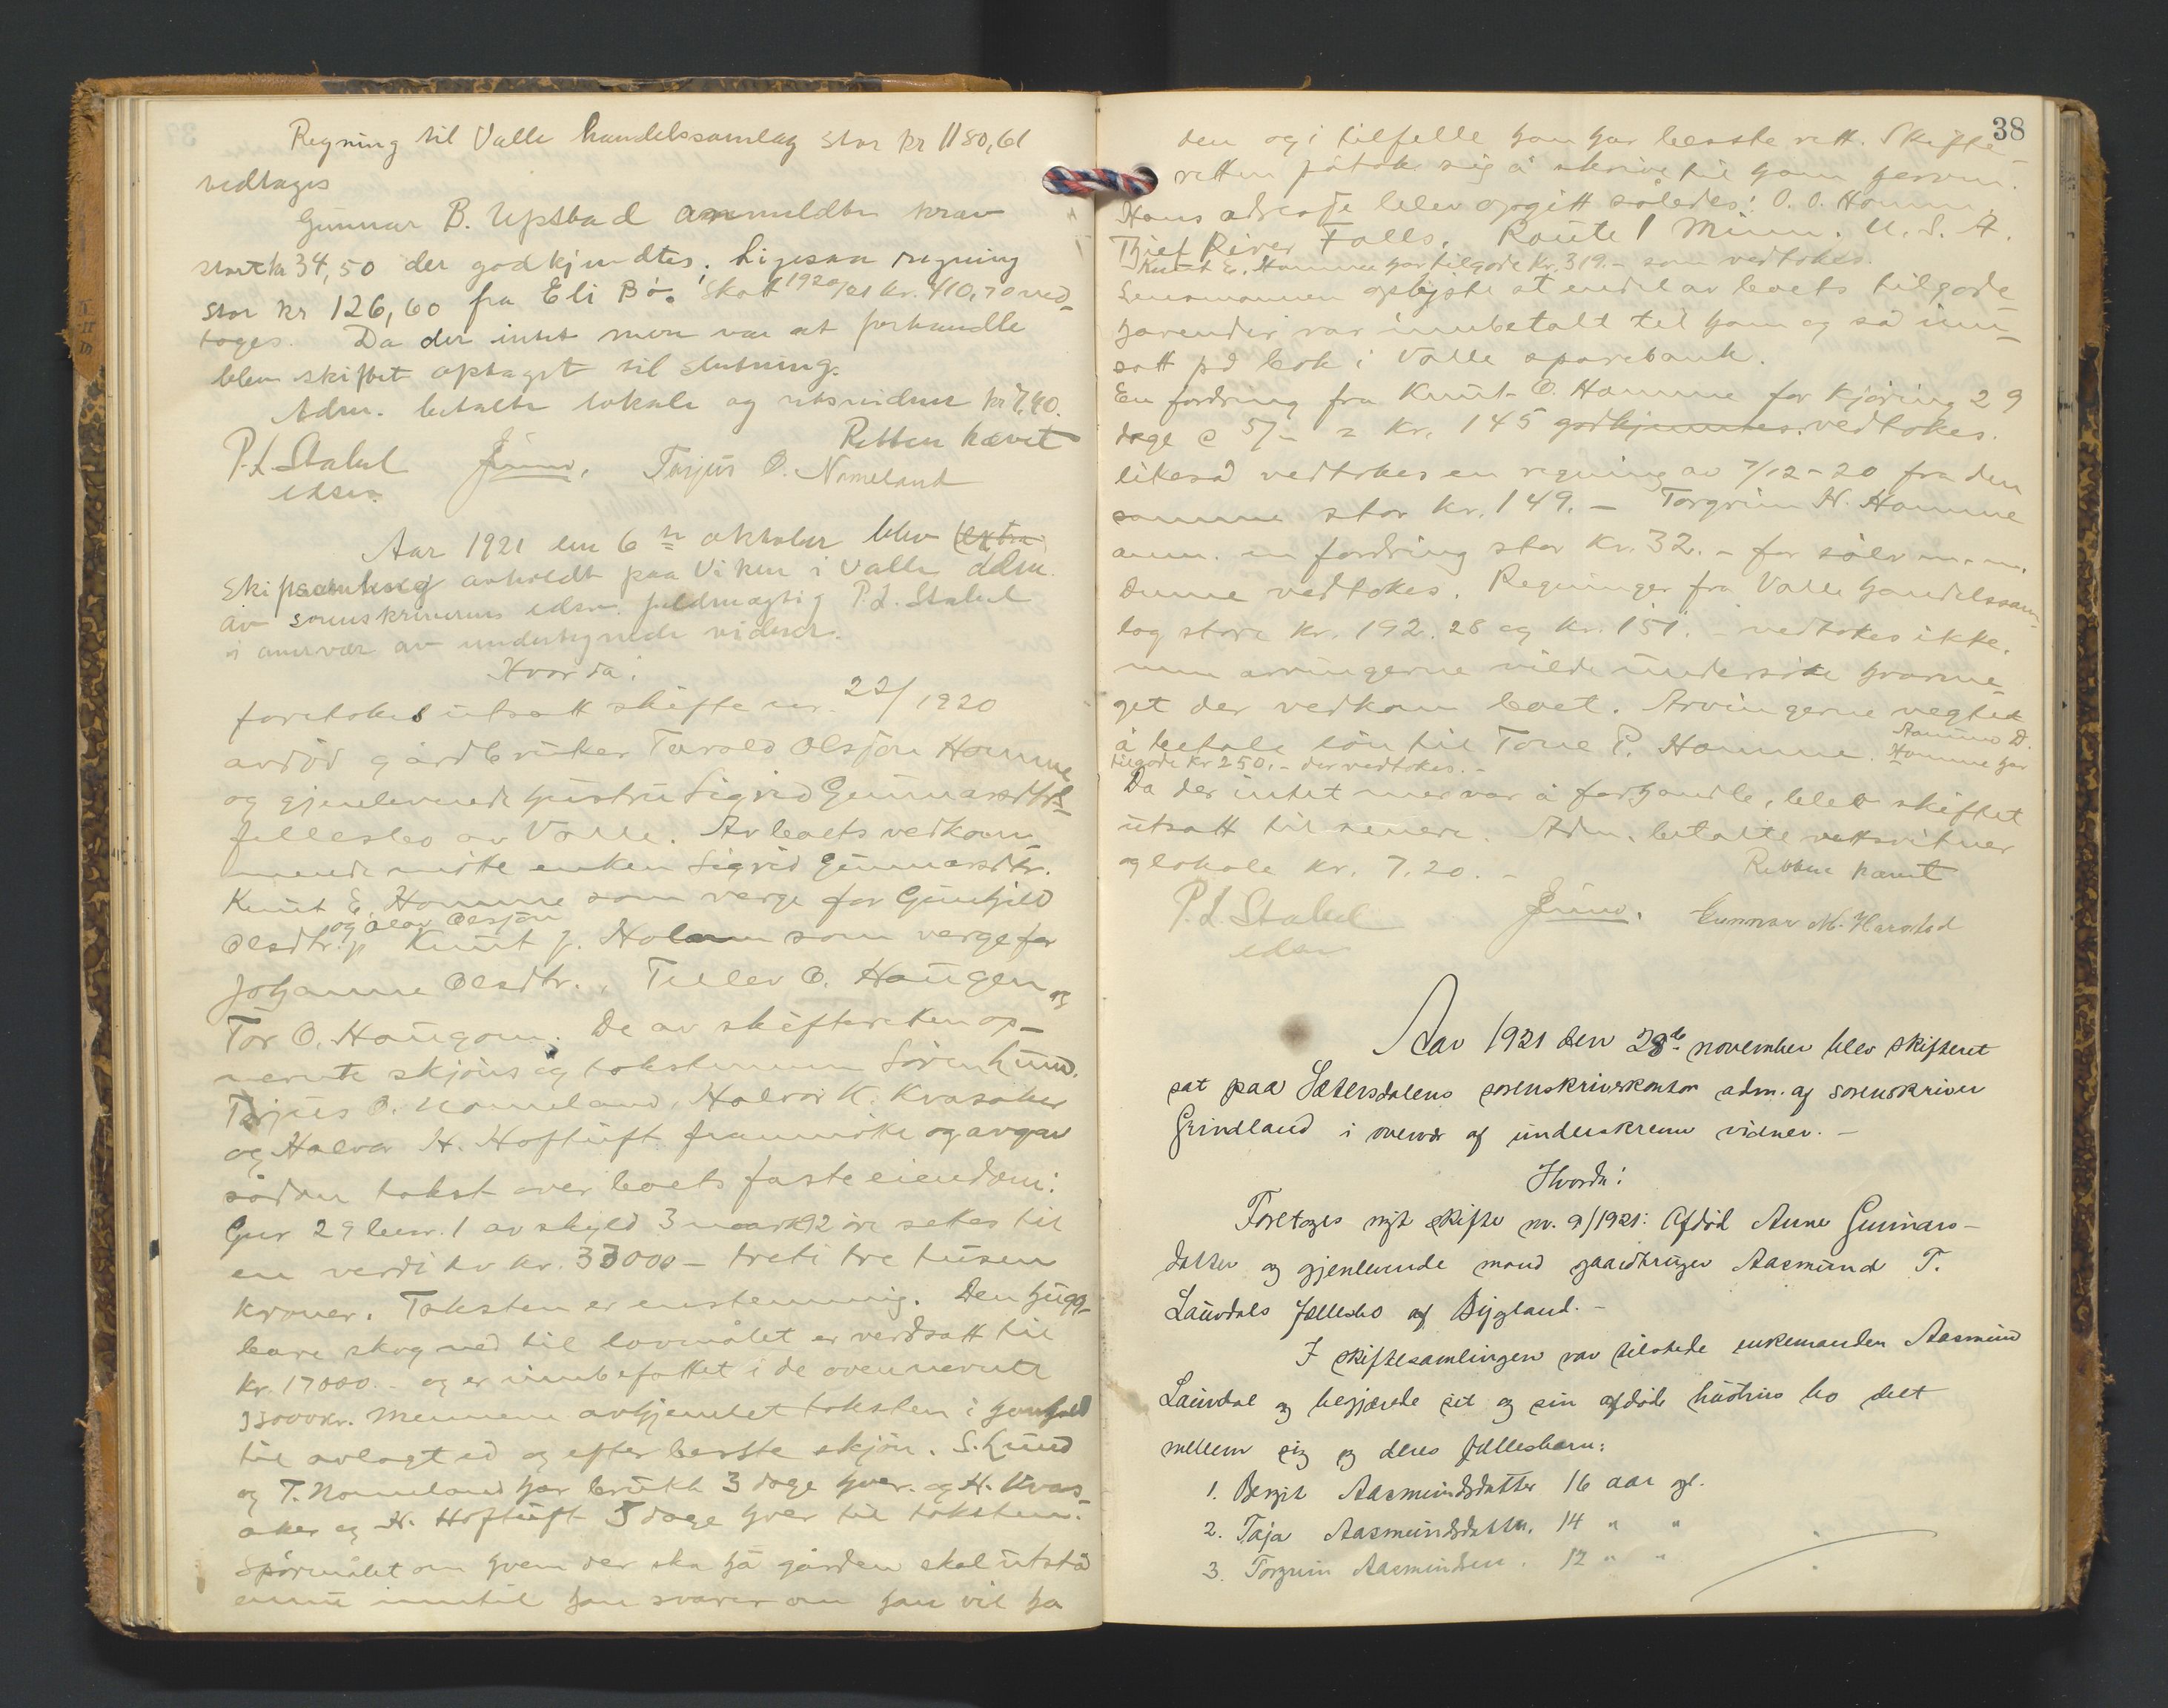 Regning til Valle handelssamlag stor kr 1180,61
vedtages
Gunnar B. Upstad anmeldte krav
stort kr 34,50 der godkjendtes. Ligesaa regning
stor kr 126,60 fra Eli Bø. Skatt 1920/21 kr. 410,70 ved-
toges. Da der intet mere var at forhandle
blev skiftet optaget til slutning.
Adm. betalte lokale og retsvidner kr 7,40.
Retten hævet
P.L. Stabel Lund. Tarjus O. Nomeland
edsv.
Aar 1921 den 6te oktober blev (extra
skiftesamling avholdt paa Viken i Valle adm.
av sorenskriverens edsv. fuldmægtig P.L. Stabel
i overvær av undertegnede vidner.
Hvorda:
foretokes utsatt skifte nr. 22/1920
avdöd gårdbruker Tarald Olsson Homme
og gjenlevende hustru Sigrid Gunnarsdtrs
fellesbo av Valle. Av boets vedkom-
mende möte enken Sigrid Gunnarsdtr.
Knut E. Homme som verge for Gunhild
Olsdtr. og Olav Olsson Knut J. Holum som verge for
Johanne Olsdtr., Tellev O. Haugen og
Tor O. Haugom. De av skifteretten op-
nevnte skjöns og takstmenn Sören Lund.
Tarjus O. Nomeland, Halvor K. Kvasaker
og Halvor H. Hoftuft frammöte og avgav
sådan takst over boets faste eiendom:
Gnr 29 bnr. 1 av skyld 3 mark 92 öre settes til
en verdi av kr. 33000 - treti tre tusen
kroner. Taksten er enstemmig. Den hugg-
bare skog ned til lovmålet er verdsatt til
kr. 17000.- og er innbefattet i de ovennevnte
33000 kr. Mennene avhjemlet taksten i henhold
til avlagt ed og efter beste skjön. S. Lund
og T. Nomeland har brukt 3 dage hver. og H. Kvas-
aker og H. Hoftuft 5 dage hver til taksten.
Spörmålet om hvem der ska ha gården skal utstå
ennu inntil han svarer om han vil ha
38
den og i tilfelle han har beste rett. Skifte-
retten påtok sig å skrive til ham herom.
Hans adresse blev opgitt således: O. O. Homme,
Thief River Falls. Route 1 Minn. U. S. A.
Knut E. Homme har tilgode kr. 319.- som vedtokes.
Lensmannen oplyste at endel av boets tilgode
havender var innbetalt til ham og så inn-
satt på bok i Valle sparebank.
En fordring fra Knut O. Homme for kjöring 29
dage a 5/- = kr. 145 godkjenntes. vedtokes.
likeså vedtokes en regning av 7/12-20 fra den
samme stor kr. 149.- Torgrim H. Homme
anm. en fordring stor kr. 32.- for sölv m.m.
Denne vedtokes. Regninger fra Valle handelssam-
lag store kr. 192.28 og kr. 151.- vedtokes ikke.
men arvingerne vilde undersöke hvorme-
get der vedkom boet. Arvingerne vegtet
å betale lön til Tone P. Homme. Aanund D.
Homme har
tilgode kr 250.- der vedtokes.-
Da der intet mer var å forhandle, blev skiftet
utsatt til senere. Adm. betalte rettsvitner
og lokale kr. 7.20.- Retten hævet
P.L. Stabel Lund. Gunnar M. Harstad
edsv
Aar 1921 den 28de november blev skifteret
sat paa Sætersdalens sorenskriverkontor adm. af sorenskriver
Grindland i overvær af underskrevne vidner.-
Hvorda:
Foretoges nyt skifte nr. 9/1921: Afdöd Anne Gunnars-
datter og gjenlevende mand gaardbruger Aasmund T.
Laurdals fællesbo af Bygland.-
I skiftesamlingen var tilstede enkemanden Aasmund
Laurdal og begjærede sit og sin afdöde hustrus bo delt
mellem sig og deres fællesbarn:
1. Bergit Aasmundsdatter 16 aar gl.
2. Taja Aasmundsdatter, 14 " "
3. Torgrim Aasmundsen. 12 " "